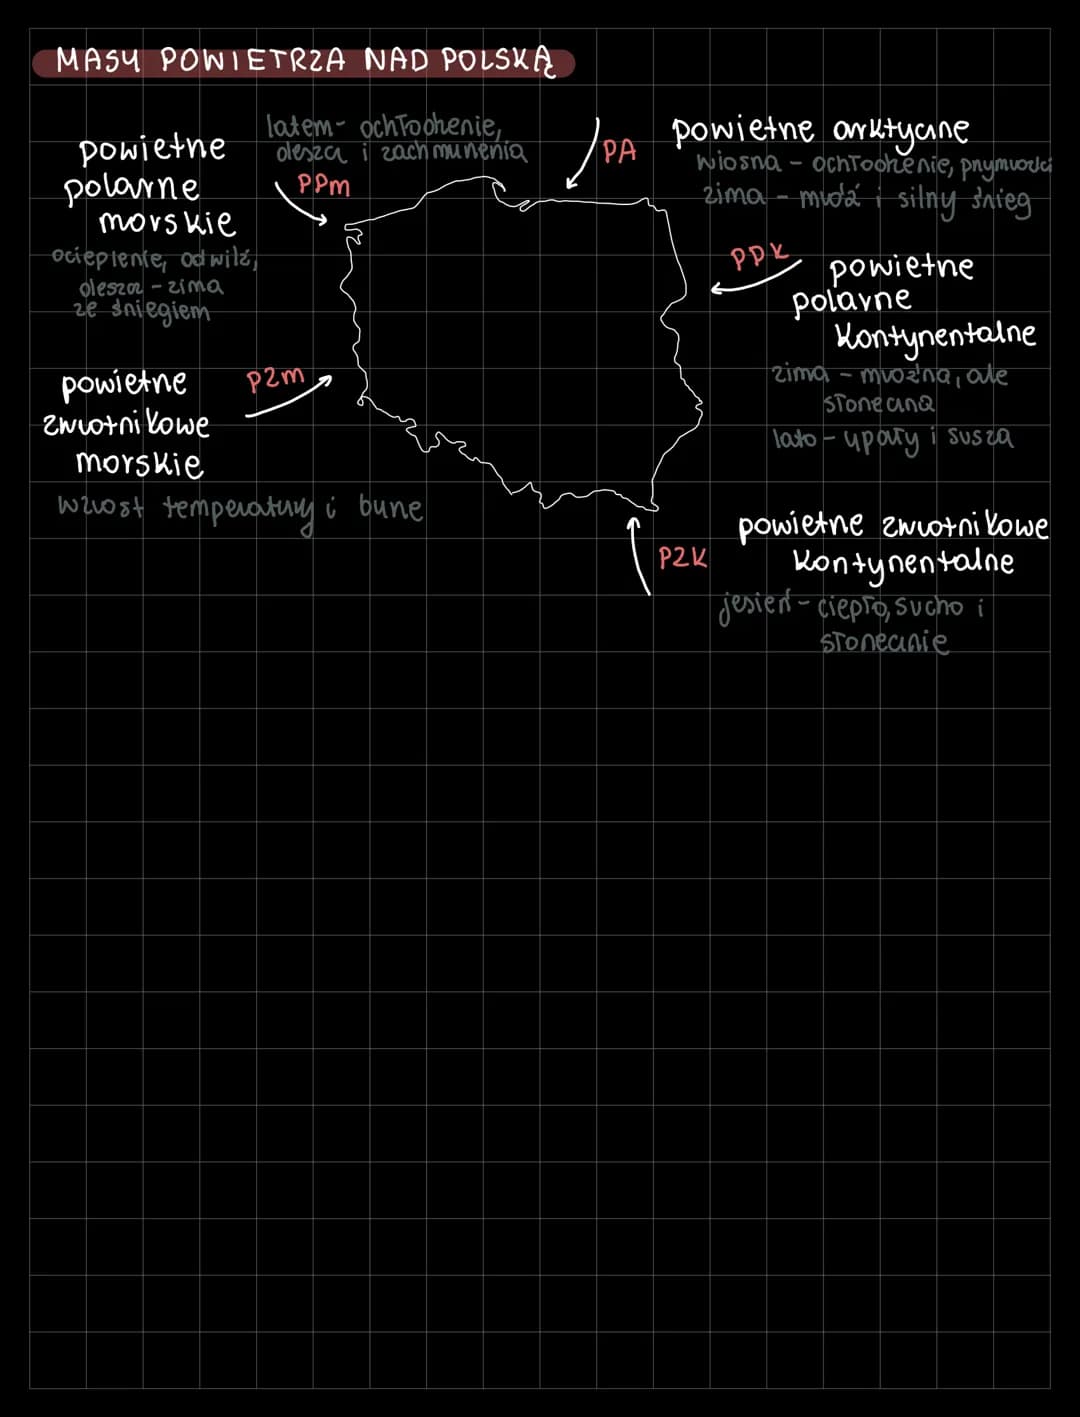 MASY POWIETRZA NAD POLSKĄ
latem - ochłodzenie,
deszcz i zachmurzenia
PPm
powietrze
polarne
morskie
ocieplenie, odwilż,
deszcz - zima
ze śniegiem
PA
powietrze arktyczne
wiosna - ochłodzenie, przymrozki
zima - mróź i silny śnieg
PPK
powietrze
polarne
kontynentalne
zima - mroźna, ale
słoneczna
lato - upały i susza
PZm
powietrze
zwrotnikowe
morskie
wzrost temperatury i burze
PZK
powietrze zwrotnikowe
kontynentalne
jesień - ciepło, sucho i
słonecznie